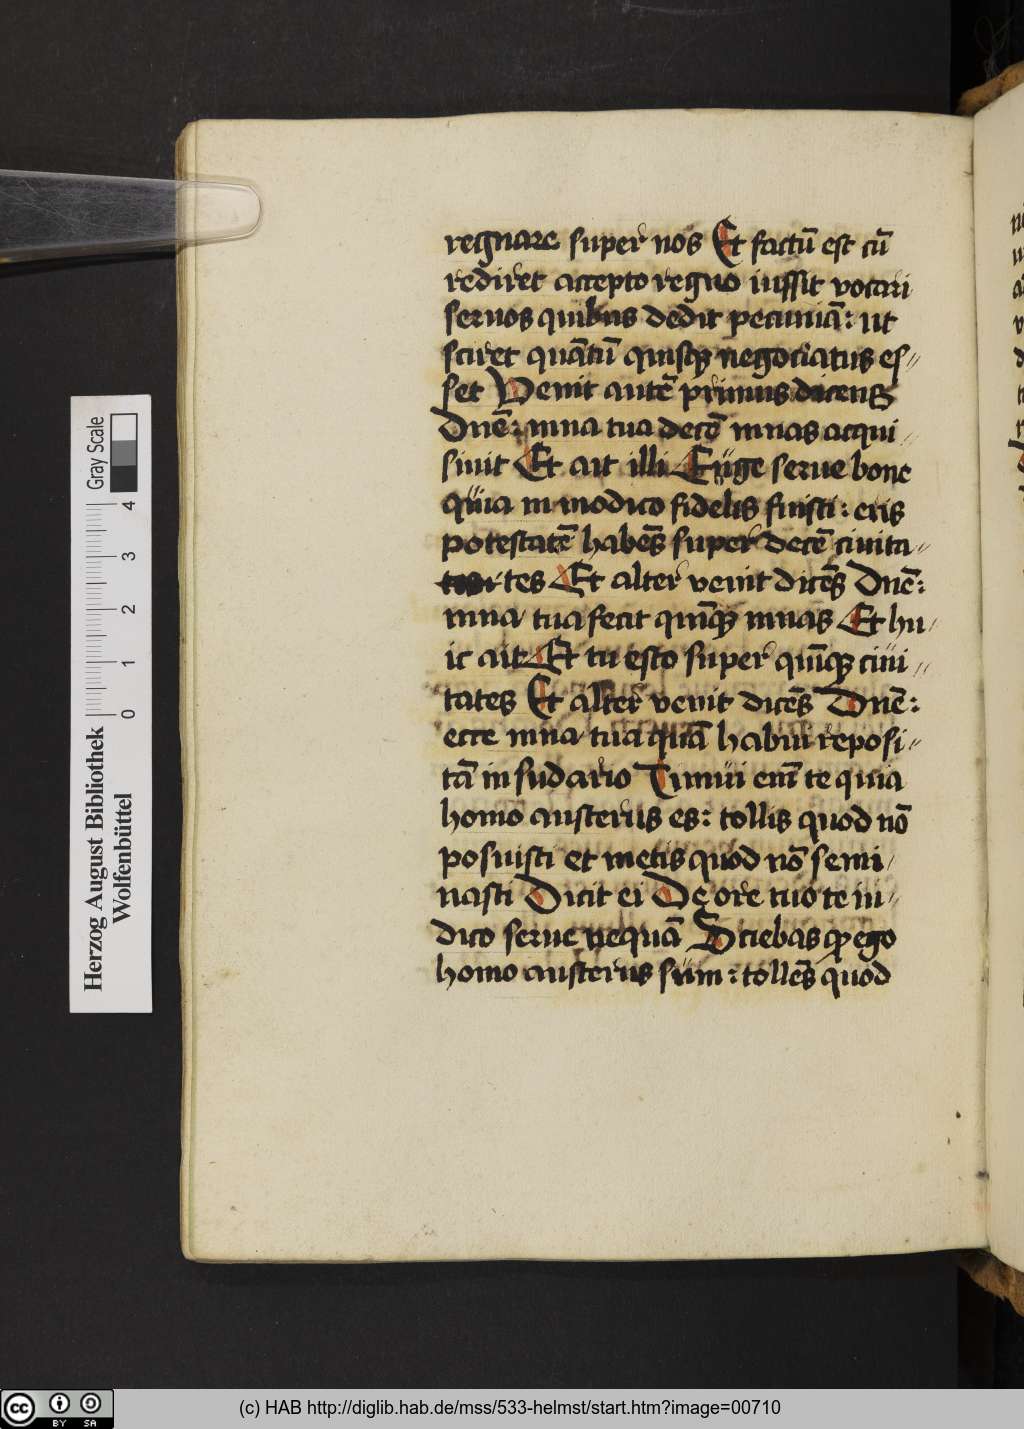 regnare super nos Et factū est cū
rediret accepto regno iussit vocari
seruos quibus dedit pecuniā: ut
sciret quātū quisqꝫ negociatus es〃
set Venit autē primus dicens
Dnē: mna tua decē mnas acqui〃
siuit Et ait illi Euge serue bone
quia in modico fidelis fuisti: eris
potestatē habēs super decē ciuita〃
tes Et alter venit dicēs Dnē:
mna tua fecit quīqꝫ mnas Et hu〃
ic ait Et tu esto super quīqꝫ ciui〃
tates Et alter venit dicēs Dnē:
ecce mna tua quā habui reposi〃
tā in sudario Timui enī te quia
homo austerus es: tollis quod nō
posuisti et metis quod nō semi〃
nasti Dicit ei De ore tuo te iu〃
dico serue nequā Sciebas qꝫ ego
homo austerus sum: tollēs quod
Gray Scale
4
3
2
1
0
Herzog August Bibliothek
Wolfenbüttel
cc BY SA
(c) HAB http://diglib.hab.de/mss/533-helmst/start.htm?image=00710